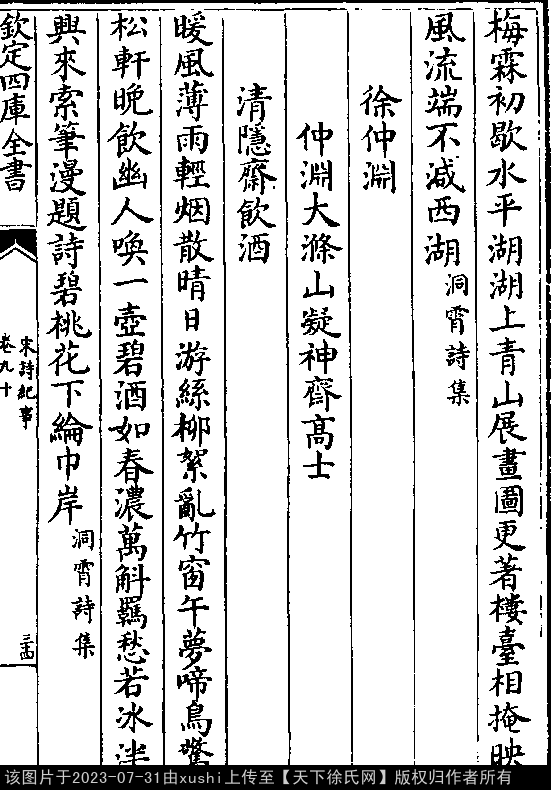 梅霖初歇水平湖湖上青山展畫圖更著樓臺相掩映
風流端不減西湖洞霄詩集
徐仲淵
仲淵大滌山凝神齋髙士
清隱齋飲酒
暖風薄雨輕烟散晴日游絲柳絮亂竹窗午夢啼鳥驚
松軒晚飲幽人喚一壺碧酒如春濃萬斛羈愁若冰泮
興來索筆漫題詩碧桃花下綸巾岸洞霄詩集
欽定四庫全書
宋詩紀事
卷九十
三十四
该图片于2023-07-31由xushi上传至【天下徐氏网】版权归作者所有